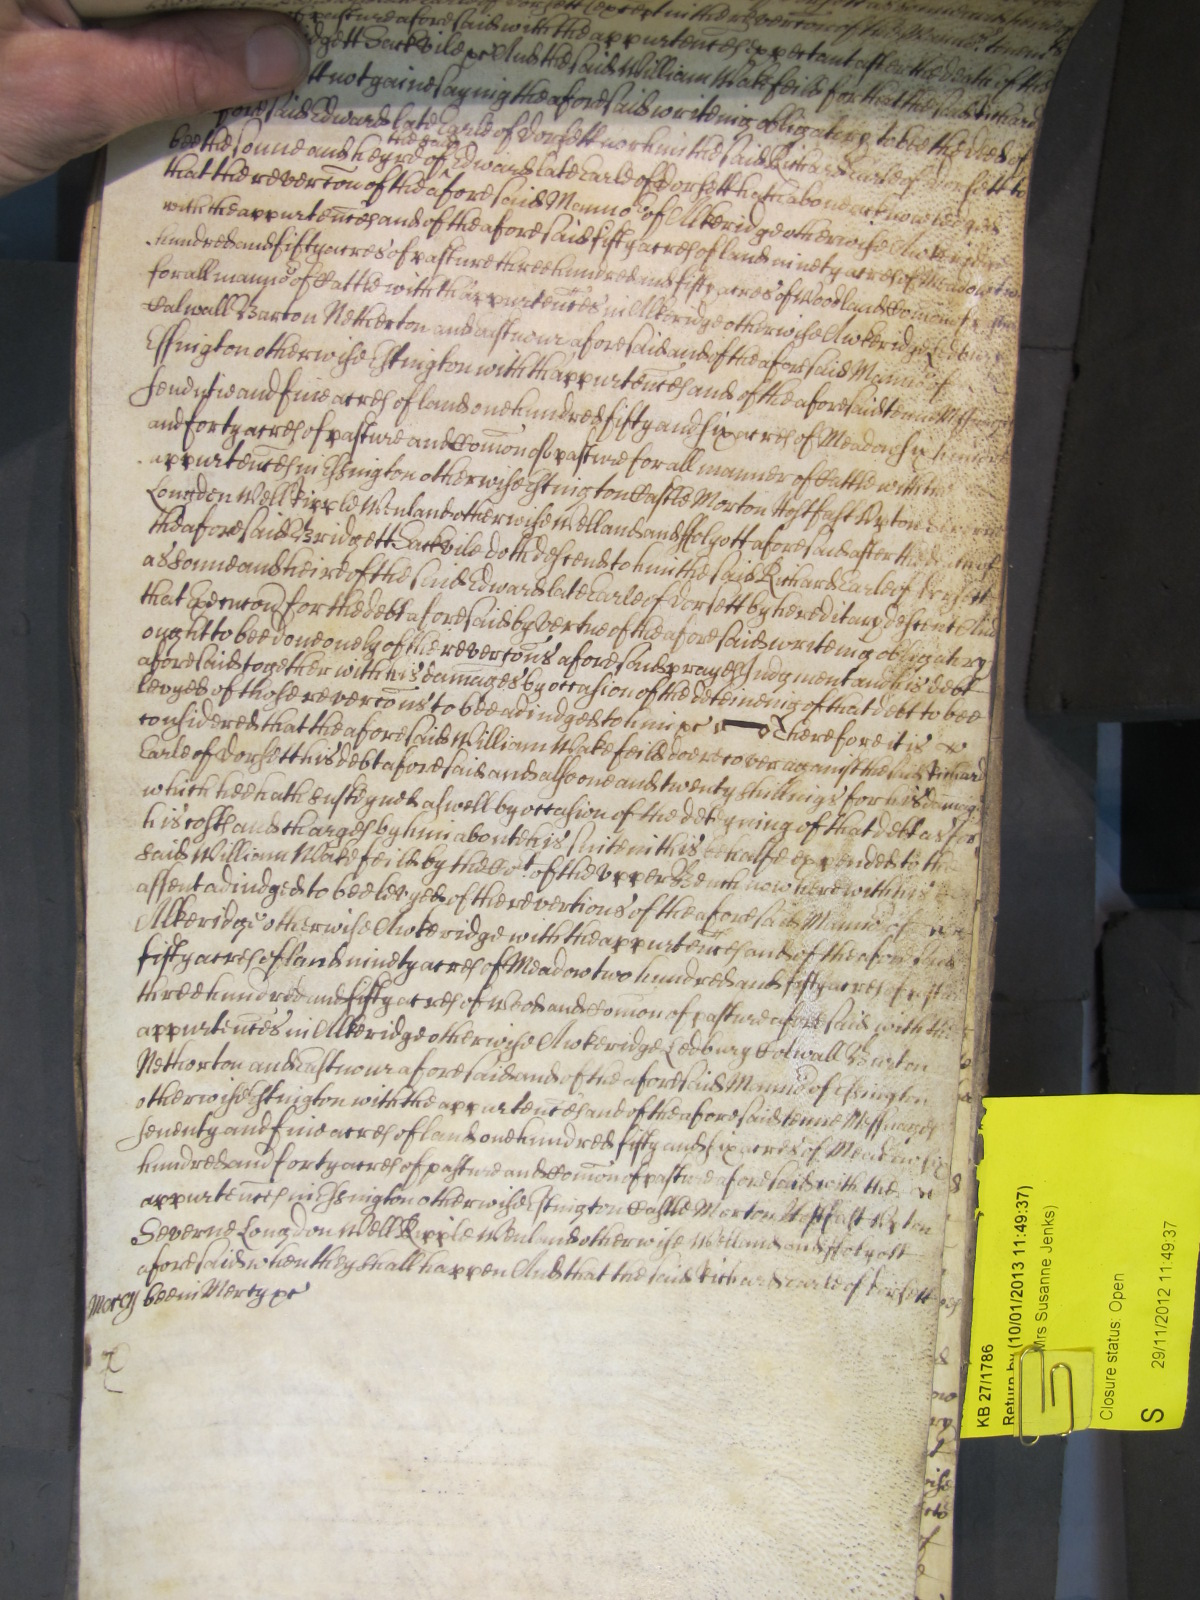 pasture aforesaid with the appurtences expectant after the death of the
Bridgett Sackvile &c And the said William Wakefeild for that the said Richard
not gainesaying the aforesaid writeing obligatory to bee the deed of
aforesaid Edward late Earle of Dorsett nor him the said Richard Earle of Dorsett to
bee the sonne and heyre of the said Edward late Earle of Dorsett hath above acknowledged
that the revercon of the aforesaid Manno:r of Alkeridge otherwise Awkeridge
with the appurtences and of the aforesaid fifty acres of land ninety acres of Meadow two
hundred and fifty acres of pasture three hundred and fifty acres of Wood and Comon of pasture
for all manno:r of Cattle with th'appurtences in Alkeridge otherwise Awkeridge Ledbury
Colwall Barton Netherton and Eastnour aforesaid and of the aforesaid Manno:r of
Essington otherwise Estington with th'appurtences and of the aforesaid tenne Messuages
seventie and five acres of land one hundred fifty and six acres of Meadow six hundred
and forty acres of pasture and Comon of pasture for all manner of Cattle with the
appurtences in Essington otherwise Estington Castle Morton Holfast Upton Severne
Longden Well Pipple Wenland otherwise Welland and Folyott aforesaid after the death of
the aforesaid Bridgett Sackvile doth descend to him the said Richard Earle of Dorsett
as sonne and heire of the said Edward late Earle of Dorsett by hereditary descent And
that Execucon for the debt aforesaid by vertue of the aforesaid writeing obligatory
ought to bee done onely of the revercons aforesaid prayes Judgment and his debt
aforesaid together with his damages by occasion of the deteineing of that debt to bee
levyed of those revercons to bee adiudged to him &c Therefore it is
considered that the aforesaid William Wakefeild doe recover against the said Richard
Earle of Dorsett his debt aforesaid and alsoe one and twenty shillings for his damages
which hee hath susteyned aswell by occasion of the deteyning of that debt as for
his costs and charges by him about his suite in this behalfe expended to the
said William Wakefeild by the Co:rt of the upper Bench now here with his
assent adiudged to bee levyed of the revertions of the aforesaid Manno:r of
Alkeridge otherwise Awkeridge with the appurtences and of the aforesaid
fifty acres of land ninety acres of Meadow two hundred and fifty acres of pasture
three hundred and fifty acres of Wood and Comon of pasture aforesaid with the
appurtences in Alkeridge otherwise Awkeridge Ledbury Colwall Barton
Netherton and Eastnour aforesaid and of the aforesaid Manno:r of Essington
otherwise Estington with the appurtences and of the aforesaid tenne Messuages
seventy and five acres of land one hundred fifty and six acres of Meadow six
hundred and forty acres of pasture and Comon of pasture aforesaid with the
appurtences in Essington otherwise Estington Castle Morton Holfast Upton
Severne Longdon Well Pipple Wenland otherwise Welland and Folyott
aforesaid when they shall happen And that the said Richard Earle of Dorsett
Mercy bee in Mercy &c
KB 27/1786
Return by (10/01/2013 11:49:37)
Mrs Susanne Jenks)
Closure status: Open
S
29/11/2012 11:49:37